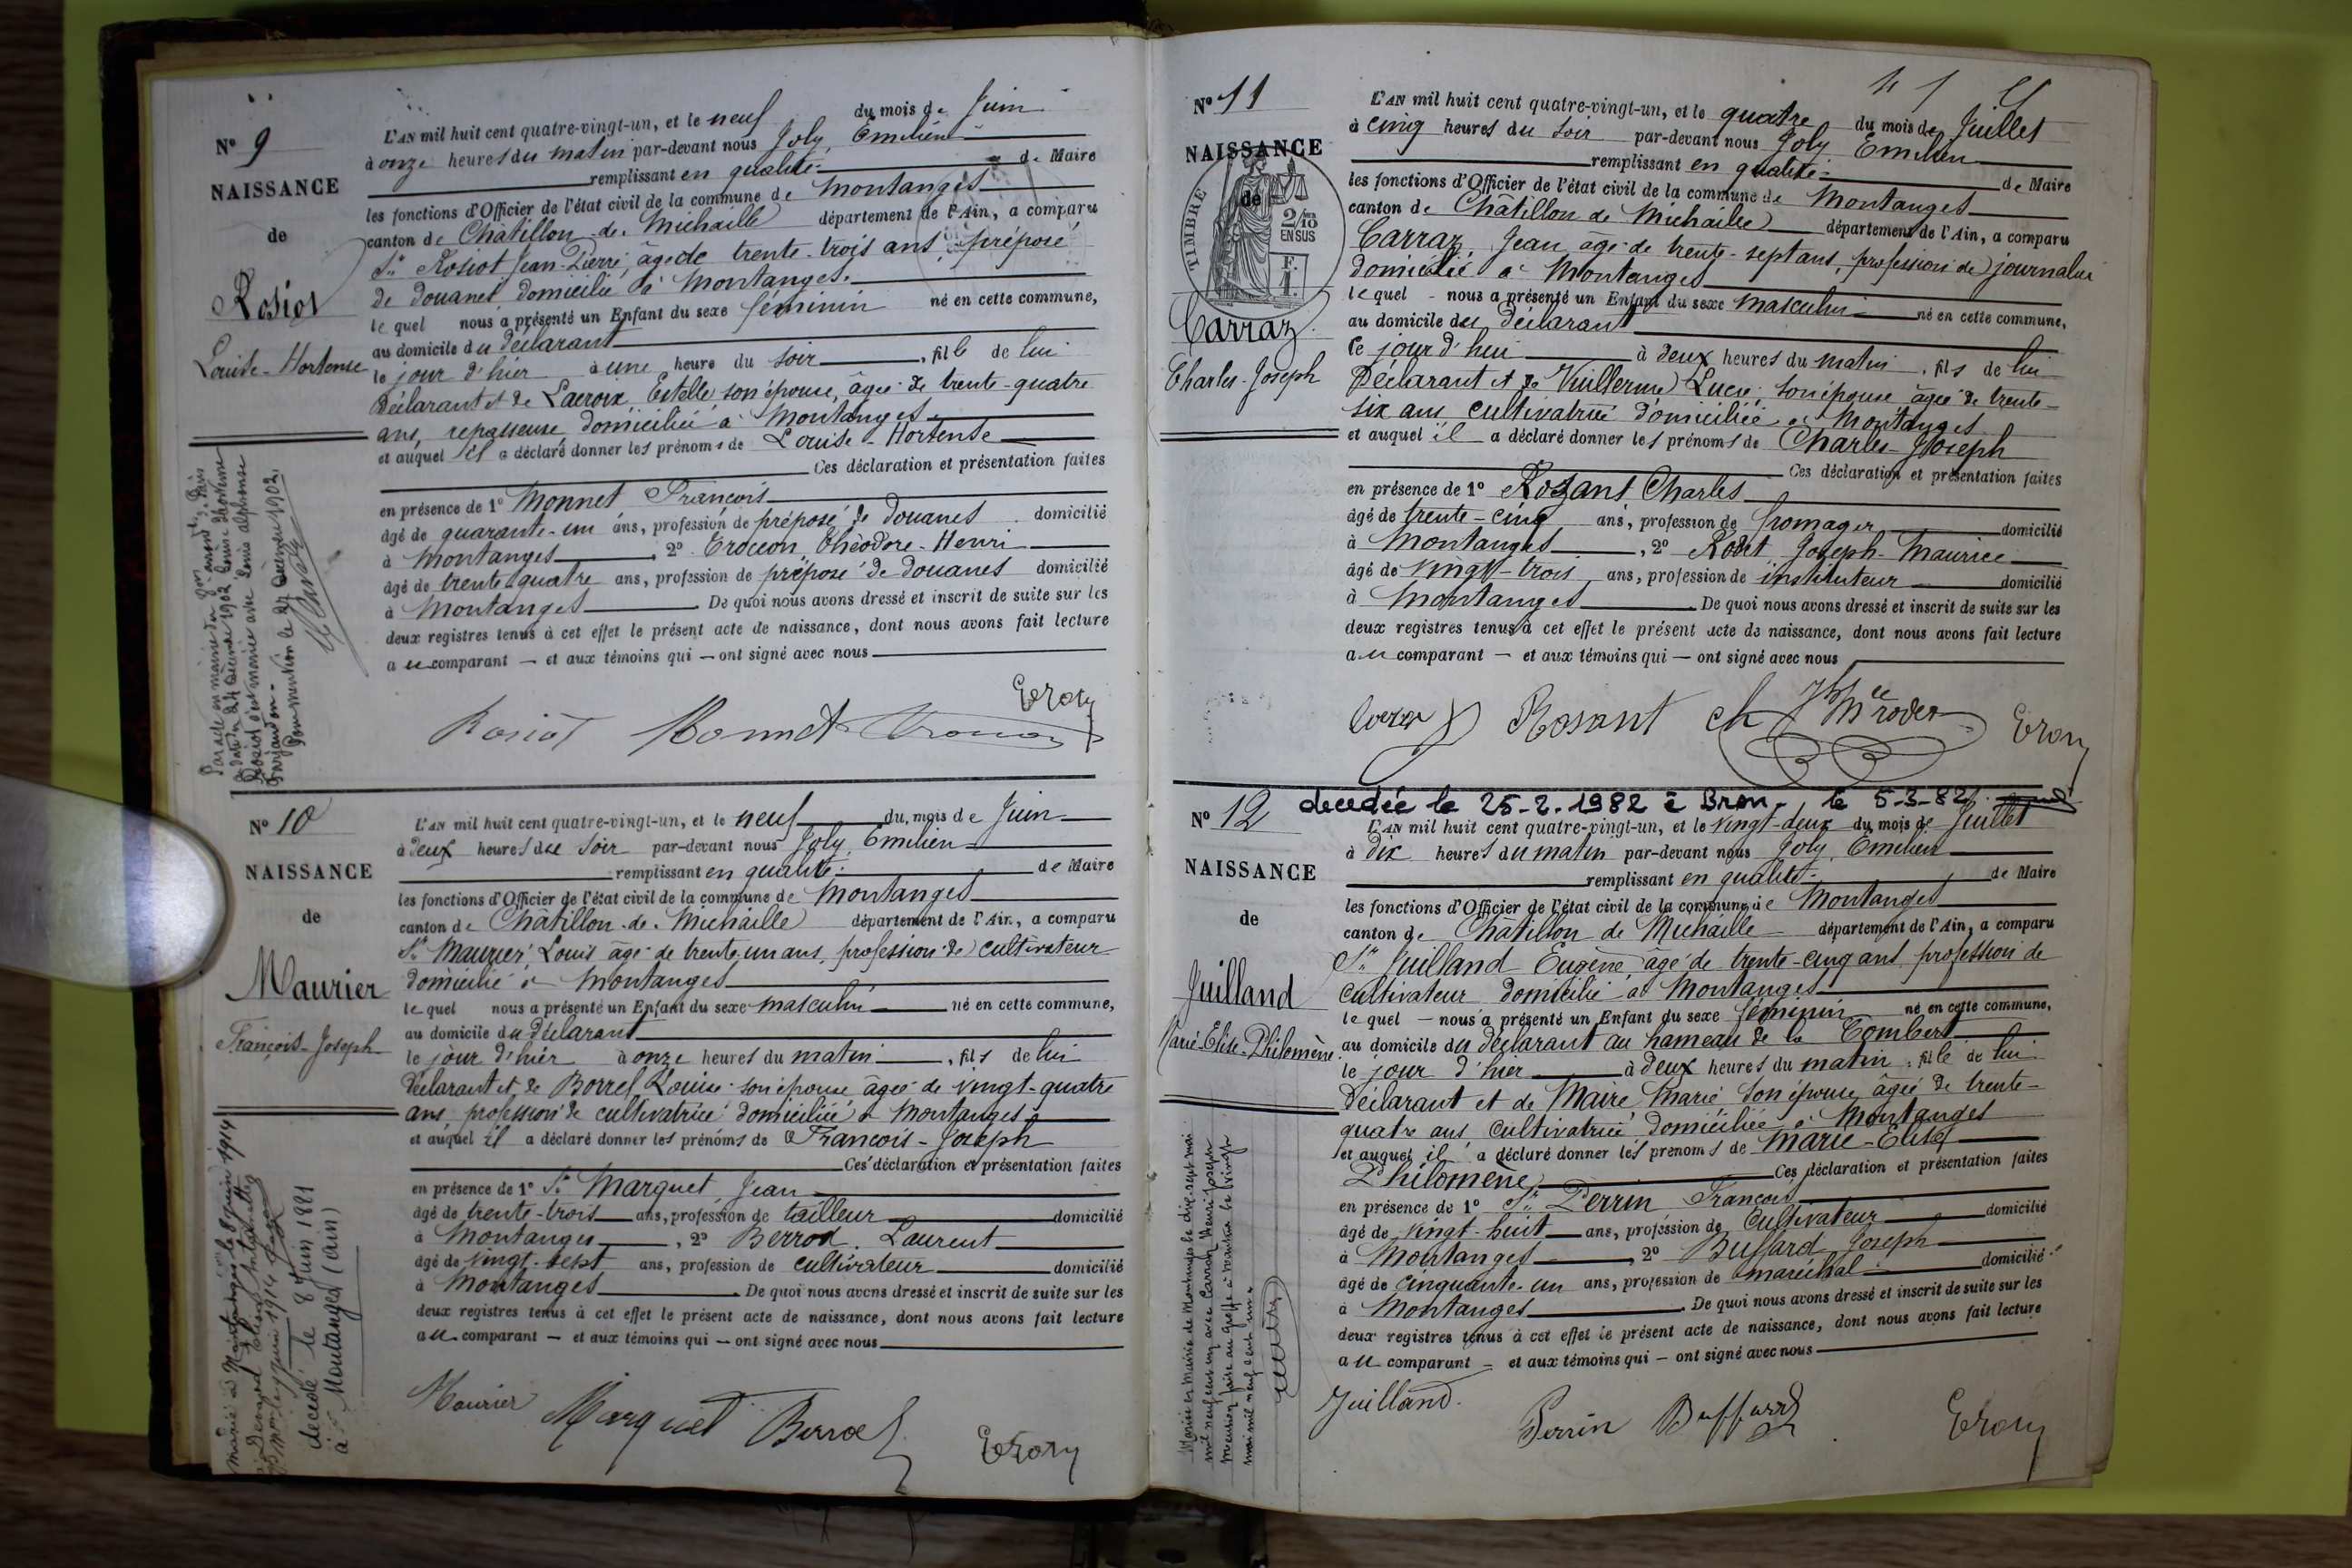 N° 9
NAISSANCE
de
Rosiot
Louise-Hortense
L'AN mil huit cent quatre-vingt-un, et le neuf du mois de Juin
à onze heures du matin par-devant nous Joly, Emilien
remplissant en qualité de Maire
les fonctions d'Officier de l'état civil de la commune de Montanges
canton de Châtillon de Michaille département de l'Ain, a comparu
Sr Rosiot Jean-Pierre, âgé de trente-trois ans, préposé
de douanes domicilié à Montanges.
lequel nous a présenté un Enfant du sexe féminin né en cette commune,
au domicile du déclarant
le jour d'hier à une heure du soir, fille de lui
Déclarant et de Lacroix Estelle son épouse, âgée de trente-quatre
ans, repasseuse, domiciliée à Montanges.
et auquel il a déclaré donner les prénoms de Louise-Hortense
Ces déclaration et présentation faites
en présence de 1° Monnet François
âgé de quarante-un ans, profession de préposé de Douanes domicilié
à Montanges, 2° Théodore-Henri
âgé de trente-quatre ans, profession de préposé de douanes domicilié
à Montanges. De quoi nous avons dressé et inscrit de suite sur les
deux registres tenus à cet effet le présent acte de naissance, dont nous avons fait lecture
au comparant — et aux témoins qui — ont signé avec nous
Rosiot Monnet
24 Décembre 1902
Rosiot s'est mariée avec Louis Alphonse
Pour mention le 27 Décembre 1902.
N° 10
NAISSANCE
de
Maurier
François-Joseph
L'AN mil huit cent quatre-vingt-un, et le neuf du mois de Juin
à deux heures du soir par-devant nous Joly, Emilien
remplissant en qualité de Maire
les fonctions d'Officier de l'état civil de la commune de Montanges
canton de Châtillon-de-Michaille département de l'Ain, a comparu
Sr Maurier Louis âgé de trente-un ans, profession de cultivateur
domicilié à Montanges
lequel nous a présenté un Enfant du sexe masculin né en cette commune,
au domicile du Déclarant
le jour d'hier à onze heures du matin, fils de lui
Déclarant et de Borrel Louise son épouse âgée de vingt-quatre
ans profession de cultivatrice domiciliée à Montanges
et auquel il a déclaré donner les prénoms de François-Joseph
Ces déclaration et présentation faites
en présence de 1° Sr Marquet Jean
âgé de trente-trois ans, profession de tailleur domicilié
à Montanges, 2° Berrod Laurent
âgé de vingt-sept ans, profession de cultivateur domicilié
à Montanges. De quoi nous avons dressé et inscrit de suite sur les
deux registres tenus à cet effet le présent acte de naissance, dont nous avons fait lecture
au comparant — et aux témoins qui — ont signé avec nous
Maurier Marquet Berrod
marié à Montanges le 8 juin 1914
décédé le 8 Juin 1881
à Montanges (ain)
N° 11
NAISSANCE
de
TIMBRE
2/10
EN SUS
Carraz
Charles-Joseph
L'AN mil huit cent quatre-vingt-un, et le quatre du mois de Juillet
à cinq heures du soir par-devant nous Joly Emilien
remplissant en qualité de Maire
les fonctions d'Officier de l'état civil de la commune de Montanges
canton de Châtillon de Michaille département de l'Ain, a comparu
Carraz, Jean, âgé de trente-sept ans, profession de journalier
domicilié à Montanges
lequel - nous a présenté un Enfant du sexe masculin né en cette commune,
au domicile du Déclarant
ce jour d'hui à deux heures du matin, fils de lui
Déclarant et de Vuillerme Lucie, son épouse âgée de trente-
six ans cultivatrice domiciliée à Montanges
et auquel il a déclaré donner les prénoms de Charles-Joseph
Ces déclaration et présentation faites
en présence de 1° Rozant Charles
âgé de trente-cinq ans, profession de fromager domicilié
à Montanges, 2° Rodet Joseph-Maurice
âgé de vingt-trois ans, profession de instituteur domicilié
à Montanges. De quoi nous avons dressé et inscrit de suite sur les
deux registres tenus à cet effet le présent acte de naissance, dont nous avons fait lecture
au comparant — et aux témoins qui — ont signé avec nous
Rosant ch
N° 12
décédée le 25-2-1982 à Bron, le 5-3-82
NAISSANCE
de
Juilland
Marie-Elise-Philomène
L'AN mil huit cent quatre-vingt-un, et le vingt-deux du mois de Juillet
à dix heures du matin par-devant nous Joly, Emilien
remplissant en qualité de Maire
les fonctions d'Officier de l'état civil de la commune de Montanges
canton de Châtillon de Michaille département de l'Ain, a comparu
Sr Juilland Eugène âgé de trente-cinq ans profession de
cultivateur domicilié à Montanges
lequel — nous a présenté un Enfant du sexe féminin né en cette commune,
au domicile du déclarant au hameau de la Combert
le jour d'hier à deux heures du matin, fille de lui
Déclarant et de Maire Marie son épouse âgée de trente-
quatre ans cultivatrice domiciliée à Montanges
et auquel il a déclaré donner les prénoms de Marie-Elise
Philomène Ces déclaration et présentation faites
en présence de 1° Sr Perrin François
âgé de vingt-huit ans, profession de Cultivateur domicilié
à Montanges, 2° Buffard Joseph
âgé de cinquante-un ans, profession de maréchal domicilié
à Montanges. De quoi nous avons dressé et inscrit de suite sur les
deux registres tenus à cet effet le présent acte de naissance, dont nous avons fait lecture
au comparant — et aux témoins qui — ont signé avec nous
Juilland. Perrin Buffard
Mariée en Mairie de Montanges le dix sept mai
mil neuf cent un avec Carraz Henri Joseph
mention faite au greffe à Nantua le vingt
mai mil neuf cent un.